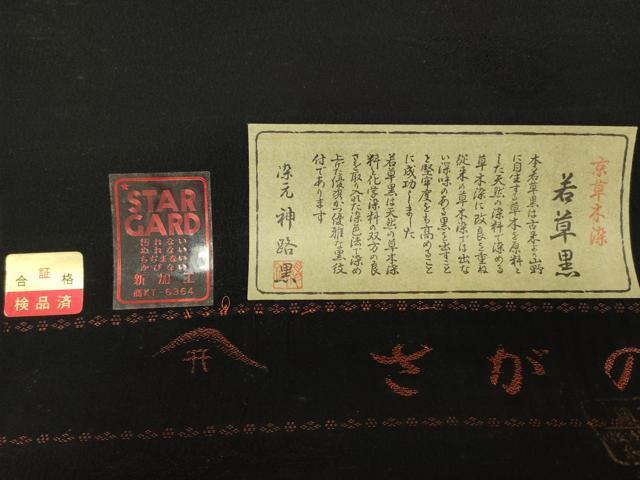 京草木染
若草黒
本若草黒は古来より山野
に自生する草木を原料と
した天然の染料で染める
草木染に改良を重ね
従来の草木染では出な
い深味のある黒を出すこと
と堅牢度をも高めること
に成功しました
若草黒は天然の草木染
料と化学染料の双方の良
さを取り入れた染色法で染め
上げた優秀かつ優雅な黒紋
付であります
染元 神路黒
STAR
GARD
いいいい
なななな
れれまび
汚ぬちか
新加工
商KT-6364
合証格
検品済
井
さがの